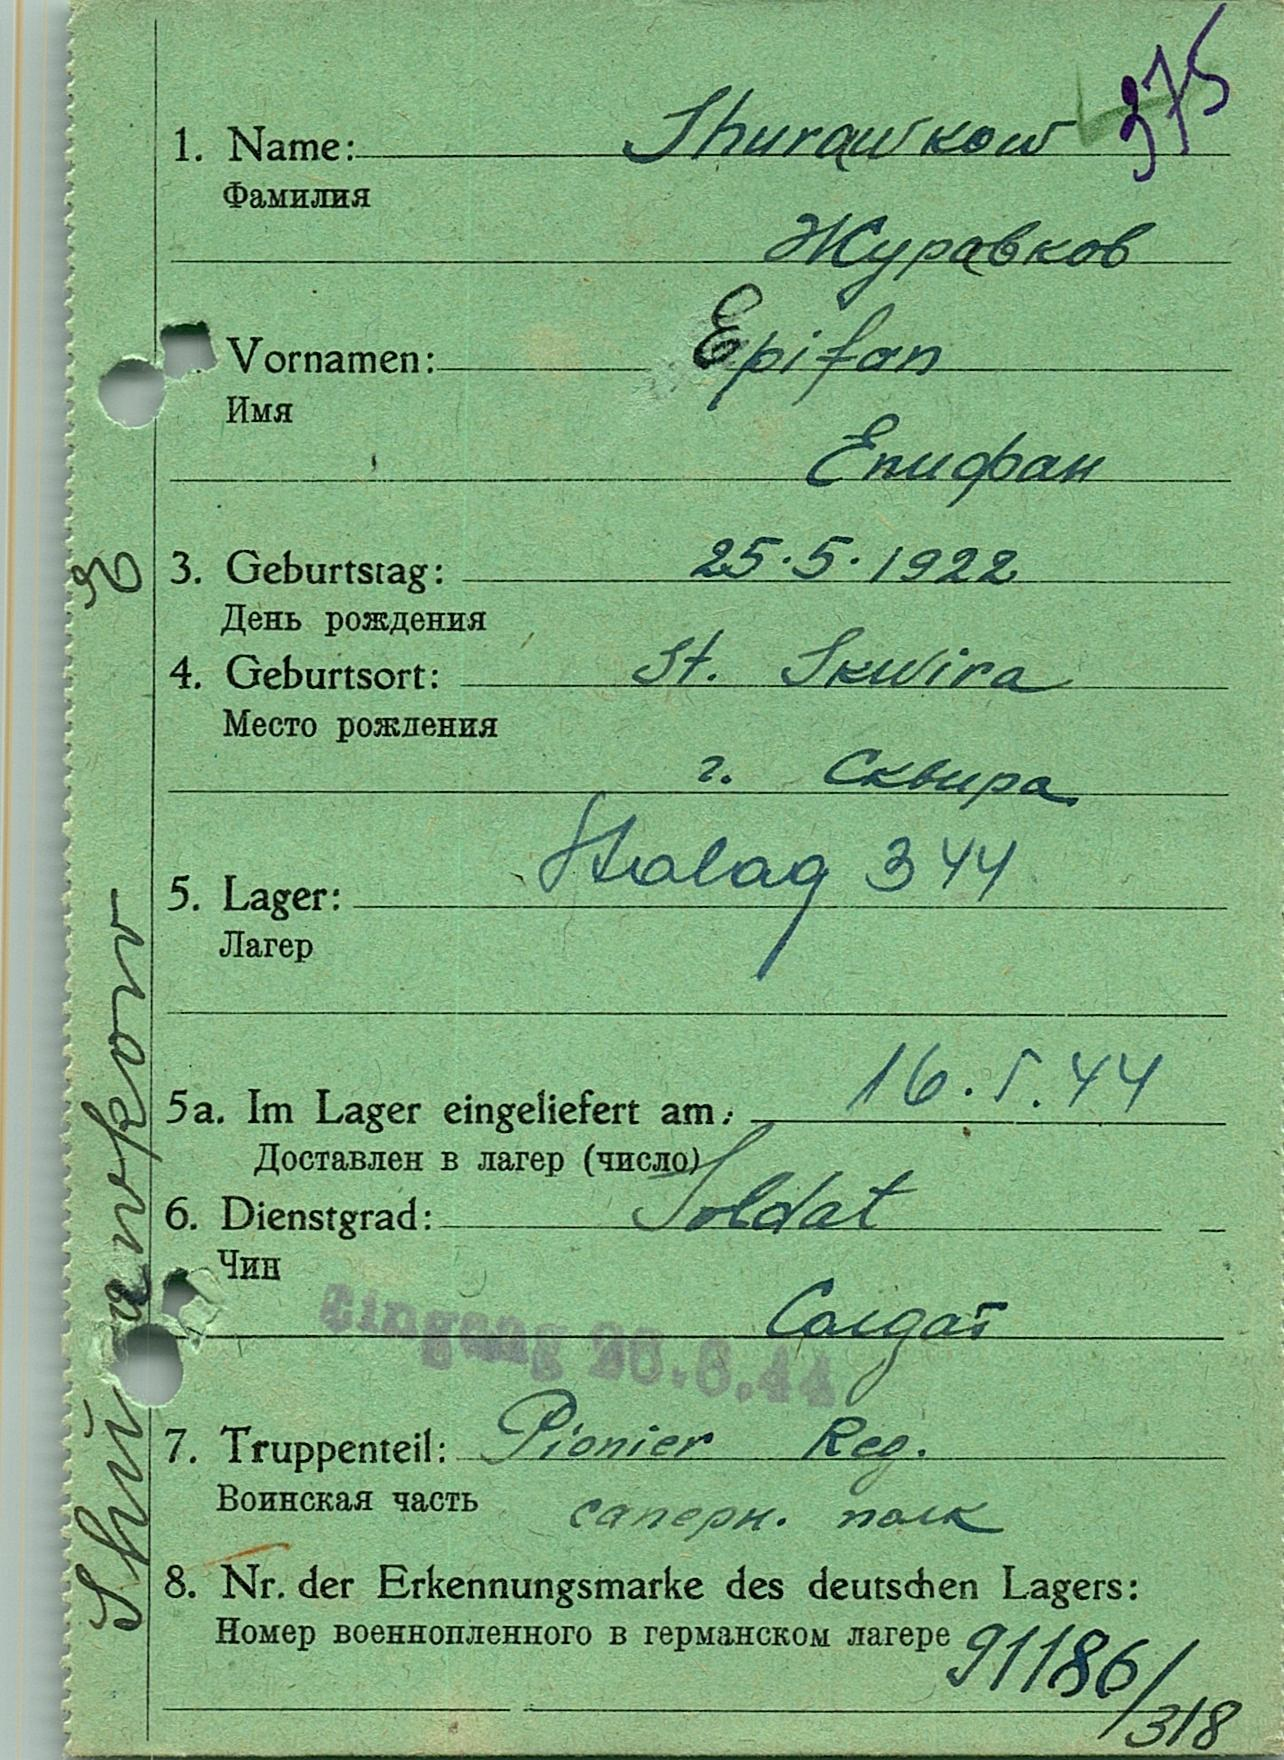 375
1. Name: Shurawkow
Фамилия
Журавков
Vornamen: Epifan
Имя
Епифан
3. Geburtstag: 25.5.1922
День рождения
4. Geburtsort: St. Skwira
Место рождения
г. Сквира
5. Lager: Stalag 344
Лагер
5a. Im Lager eingeliefert am: 16.5.44
Доставлен в лагер (число)
6. Dienstgrad: Soldat
Чин
Солдат
Eingang 26.6.44
7. Truppenteil: Pionier Reg.
Воинская часть саперн. полк
8. Nr. der Erkennungsmarke des deutschen Lagers:
Номер военнопленного в германском лагере 91186/318